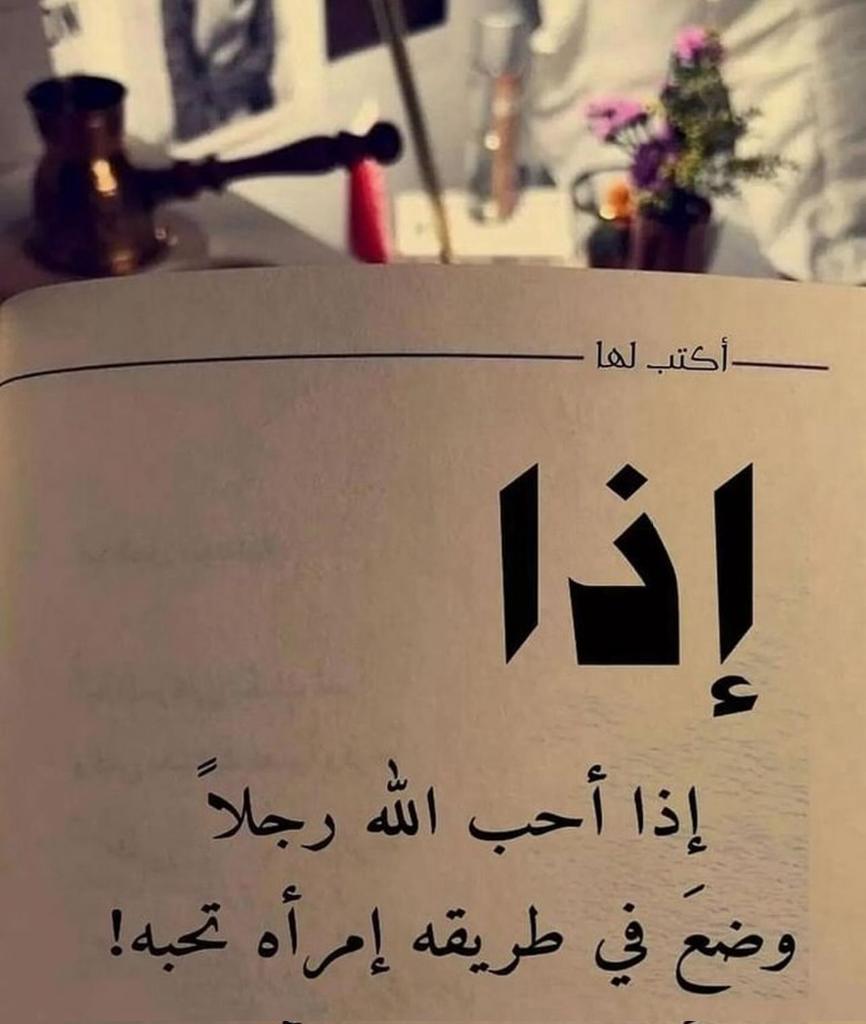 أكتب لها
إذا
إذا أحب الله رجلاً
وضعَ في طريقه إمرأه تحبه!